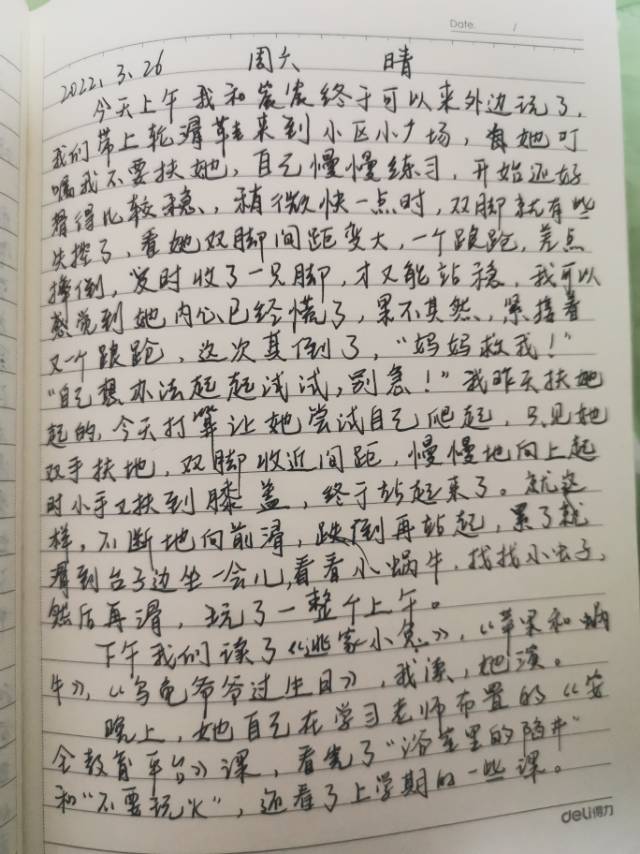 Date. /
2022.3.26 周六 晴
今天上午我和宸宸终于可以来外边玩了,
我们带上轮滑鞋来到小区小广场,她叮
嘱我不要扶她,自己慢慢练习,开始还好
滑得比较稳、稍微快一点时,双脚就有些
失控了,看她双脚间距变大,一个踉跄,差点
摔倒,及时收了一只脚,才又能站稳,我可以
感觉到她内心已经慌了,果不其然,紧接着
又一个踉跄,这次真倒了,“妈妈救我!”
“自己想办法起起试试,别急!”我昨天扶她
起的,今天打算让她尝试自己爬起,只见她
双手扶地,双脚收近间距,慢慢地向上起
时小手又扶到膝盖,终于站起来了。就这
样,不断地向前滑,跌倒再站起,累了就
滑到台子边坐一会儿,看看小蜗牛,找找小虫子,
然后再滑,玩了一整个上午。
下午我们读了《逃家小兔》,《苹果和蜗
牛》,《乌龟爷爷过生日》,我读,她读。
晚上,她自己在学习老师布置的《安
全教育平台》课,看完了“浴室里的陷井”
和“不要玩火”,还看了上学期的一些课。
deli得力